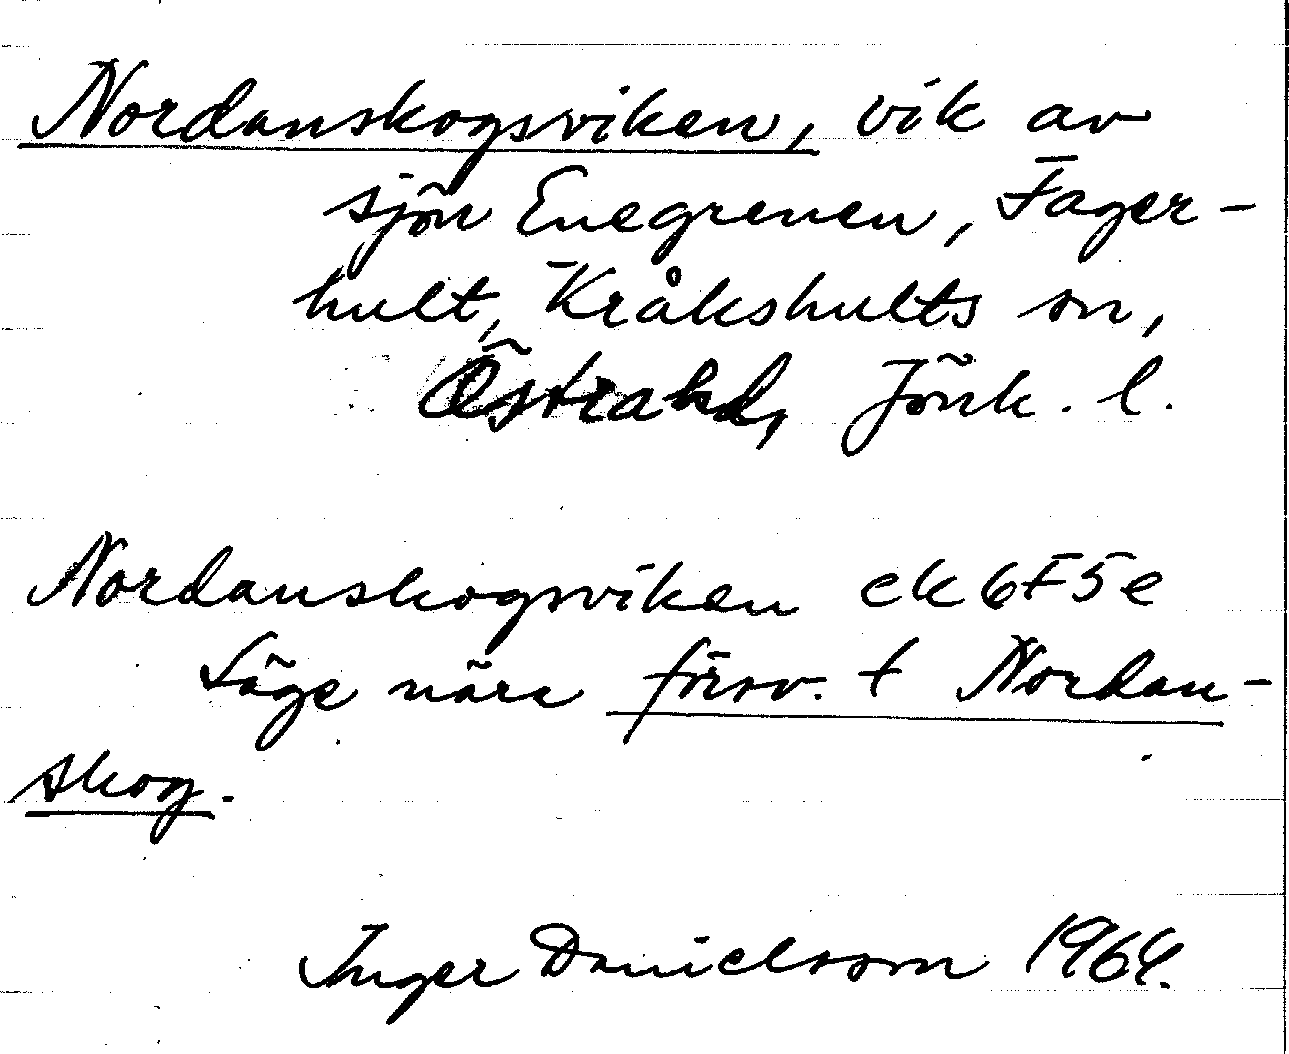 Nordanskogsviken, vik av
sjön Enegrenen, Fager-
hult, Kråkshults sn,
Östra hd, Jönk. l.
Nordanskogsviken ek 6F5e
Läge nära försv. t Nordan-
skog.
Inger Danielsson 1964.